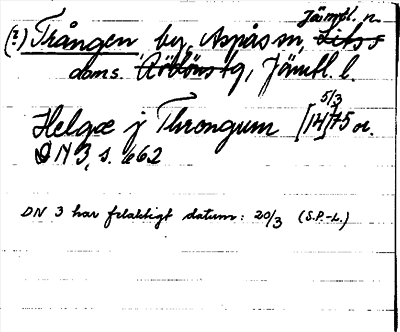 Jämtl. n.
(?) Trången, by, Aspås sn, Lits s
doms. Rödöns tg, Jämtl. l.
5/3
Helgæ j Throngum [14]75 or.
DN 3, s. 662
DN 3 har felaktigt datum: 20/3 (S.P.-L.)